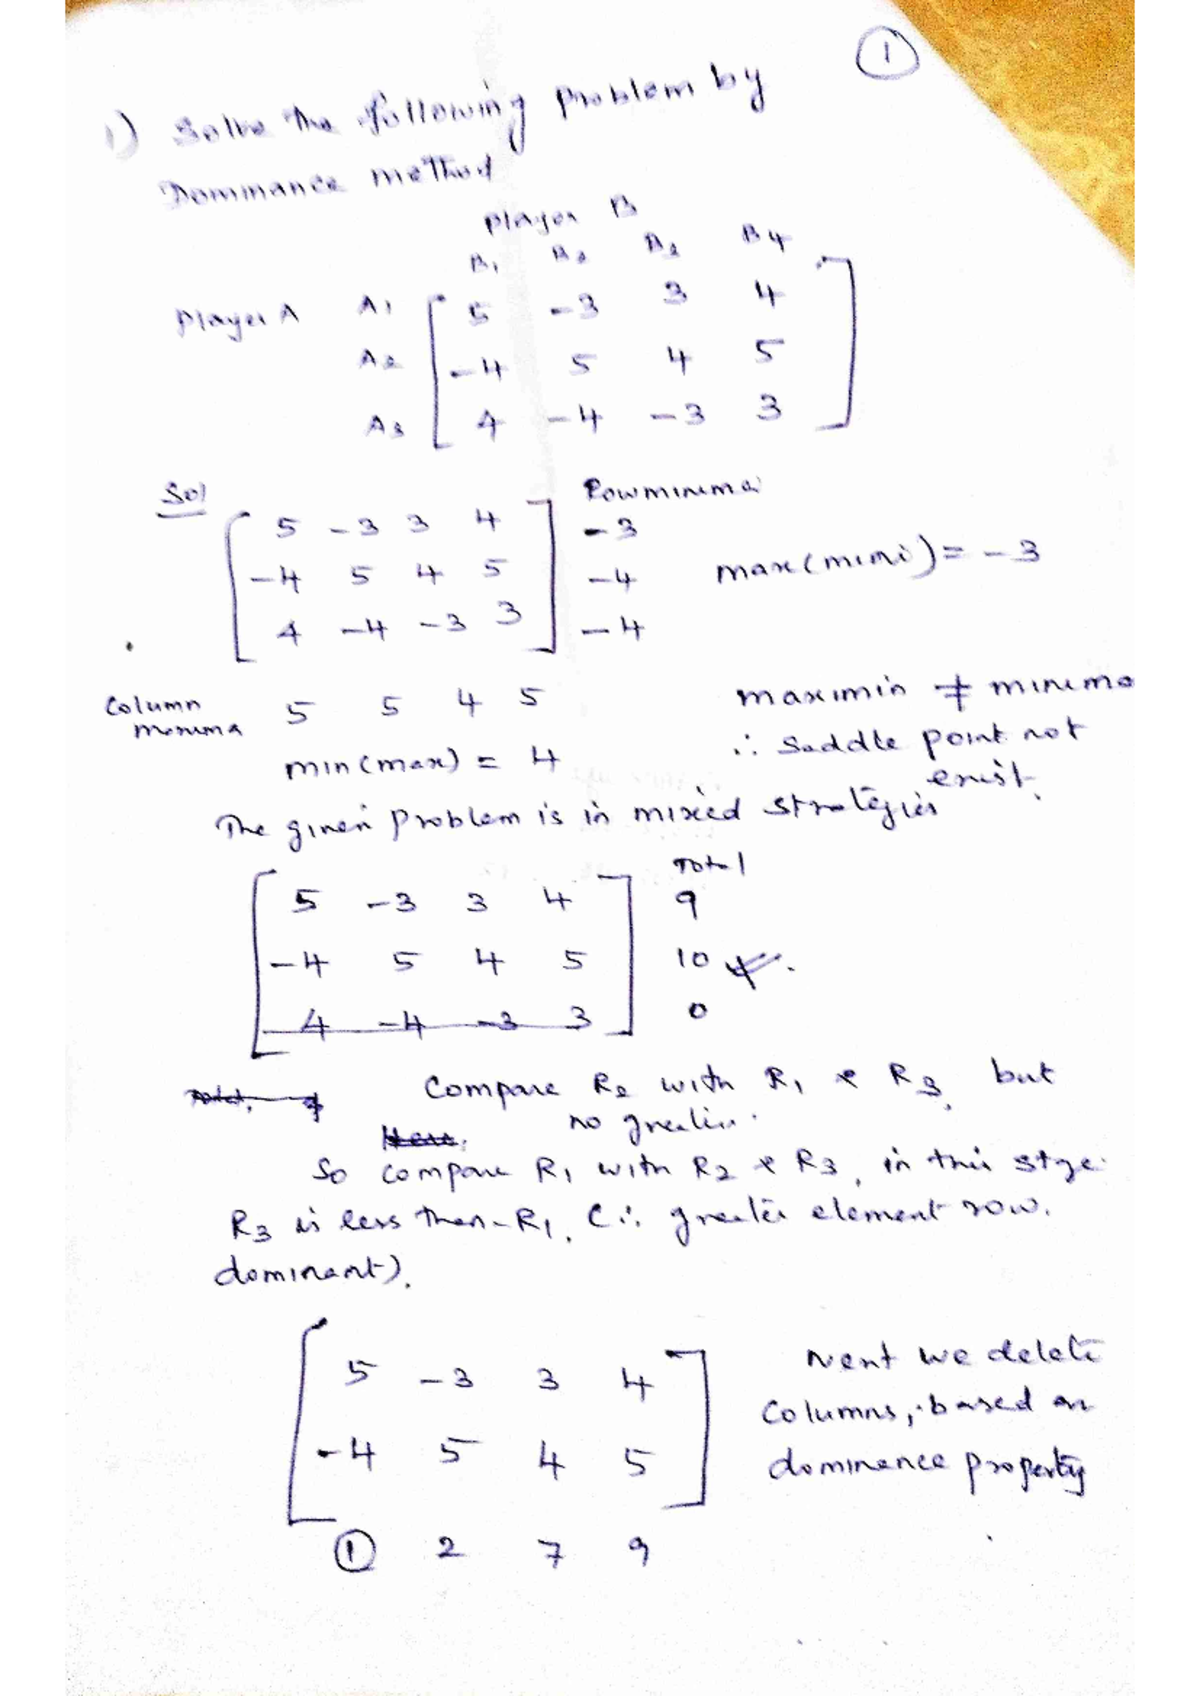 1
1) Solve the following problem by
Dominance method
player B
B1 B2 B3 B4
Player A A1 5 -3 3 4
A2 -4 5 4 5
A3 4 -4 -3 3
Sol Row minima
5 -3 3 4 -3
-4 5 4 5 -4 max(mini) = -3
4 -4 -3 3 -4
Column 5 5 4 5 maximin ≠ minima
min(max) = 4 ∴ Saddle point not
exist.
The given problem is in mixed strategies
Total
5 -3 3 4 9
-4 5 4 5 10
4 -4 -3 3 0
Compare R2 with R1 & R3, but
no greater.
So compare R1 with R2 & R3, in this stge.
R3 is less than R1. (∴ greater element row.
dominant).
5 -3 3 4 Next we delete
columns, based on
-4 5 4 5 dominance property
1 2 7 9